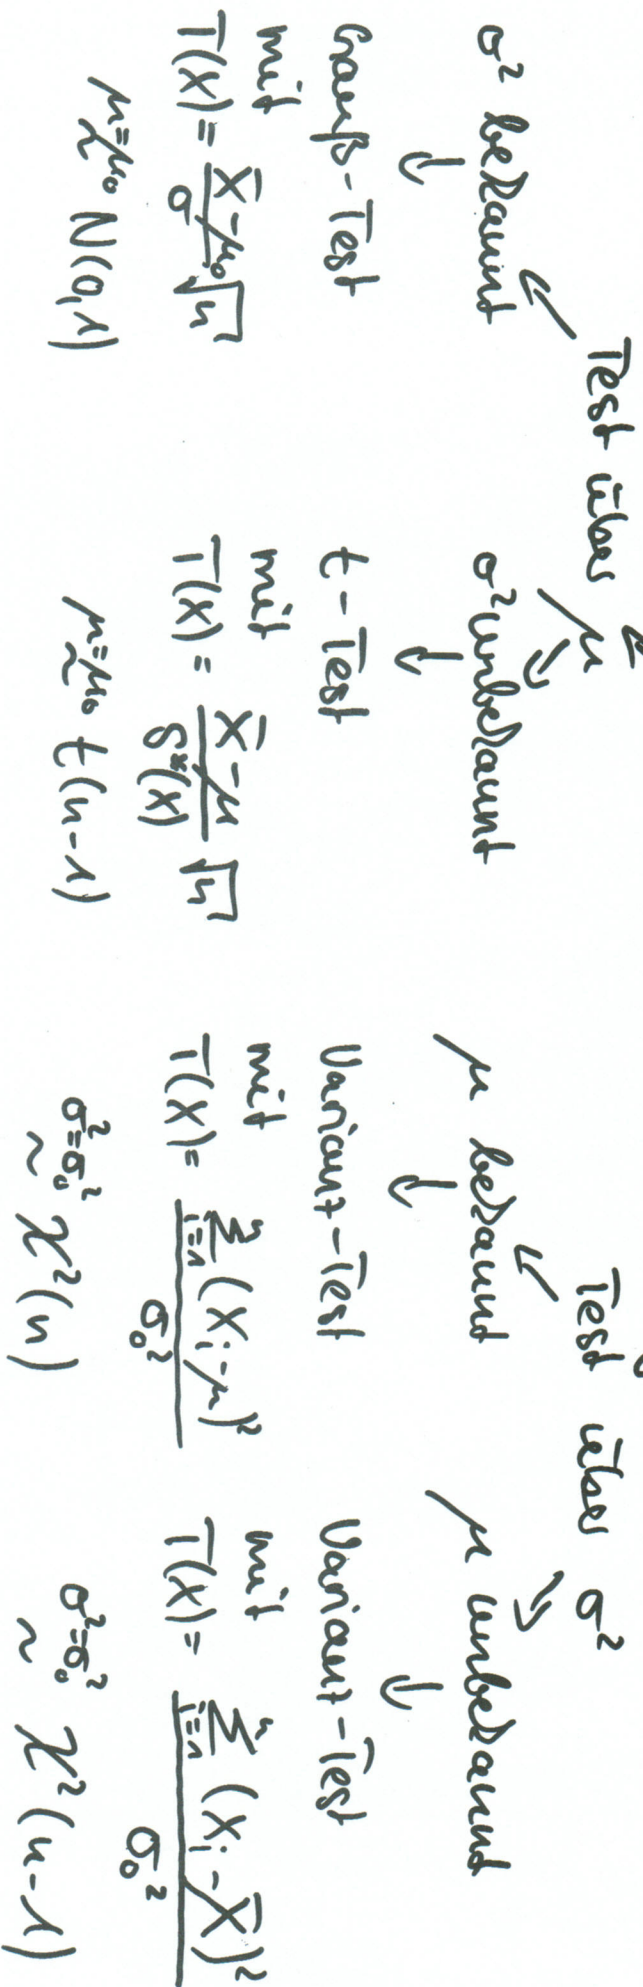 Test über μ
σ² bekannt
↓
Gauß-Test
mit
T(X) = (X̄-μ₀)/σ √n
μ=μ₀ ~ N(0,1)
σ² unbekannt
↓
t-Test
mit
T(X) = (X̄-μ)/S*(X) √n
μ=μ₀ ~ t(n-1)
Test über σ²
μ bekannt
↓
Varianz-Test
mit
T(X) = Σⁿᵢ₌₁ (Xᵢ-μ)² / σ₀²
σ²=σ₀² ~ χ²(n)
μ unbekannt
↓
Varianz-Test
mit
T(X) = Σⁿᵢ₌₁ (Xᵢ-X̄)² / σ₀²
σ²=σ₀² ~ χ²(n-1)